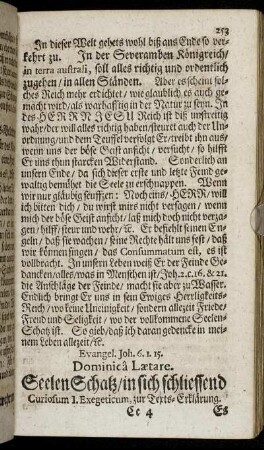 253
In dieser Welt gehets wohl biß ans Ende so ver-
kehrt zu. In der Severamben Königreich/
in terra australi, soll alles richtig und ordentlich
zugehen / in allen Ständen. Aber es scheint sol-
ches Reich mehr erdichtet / wie glaublich es auch ge-
macht wird / als warhafftig in der Natur zu seyn. In
des HERRN JESU Reich ist diß unstreitig
wahr / der will alles richtig haben / steuret auch der Un-
ordnung / und dem Teuffel verfolgt Er / treibt ihn aus/
wenn uns der böse Geist anficht / versucht / so hilfft
Er uns thun starcken Widerstand. Sonderlich an
unsern Ende / da sich dieser erste und letzte Feind ge-
waltig bemühet die Seele zu erschnappen. Wenn
wir nur gläubig seufftzen: Noch eins / HERR / will
ich bitten dich / du wirsts mir nicht versagen / wenn
mich der böse Geist anficht / laß mich doch nicht verza-
gen / hilff / steur und wehr / ꝛc. Er befiehlt seinen En-
geln / daß sie wachen / seine Rechte hält uns fest / daß
wir können singen / das Consummatum est, es ist
vollbracht. In unsern Leben weiß Er der Feinde Ge-
dancken / alles / was in Menschen ist / Joh. 2. c. 16. & 21.
die Anschläge der Feinde / macht sie aber zu Wasser.
Endlich bringt Er uns in sein Ewiges Herrligkeits-
Reich / wo keine Uneinigkeit / sondern allezeit Friede/
Freud und Seligkeit / wo der vollkommene Seelen-
Schatz ist. So gieb / daß Jch daran gedencke in mei-
nem Leben allezeit / ꝛc.
Evangel. Joh. 6. 1. 15.
Dominicâ Lætare.
Seelen Schatz / in sich schliessend
Curiosum I. Exegeticum, zur Texts-Erklärung.
Cc 4 Es